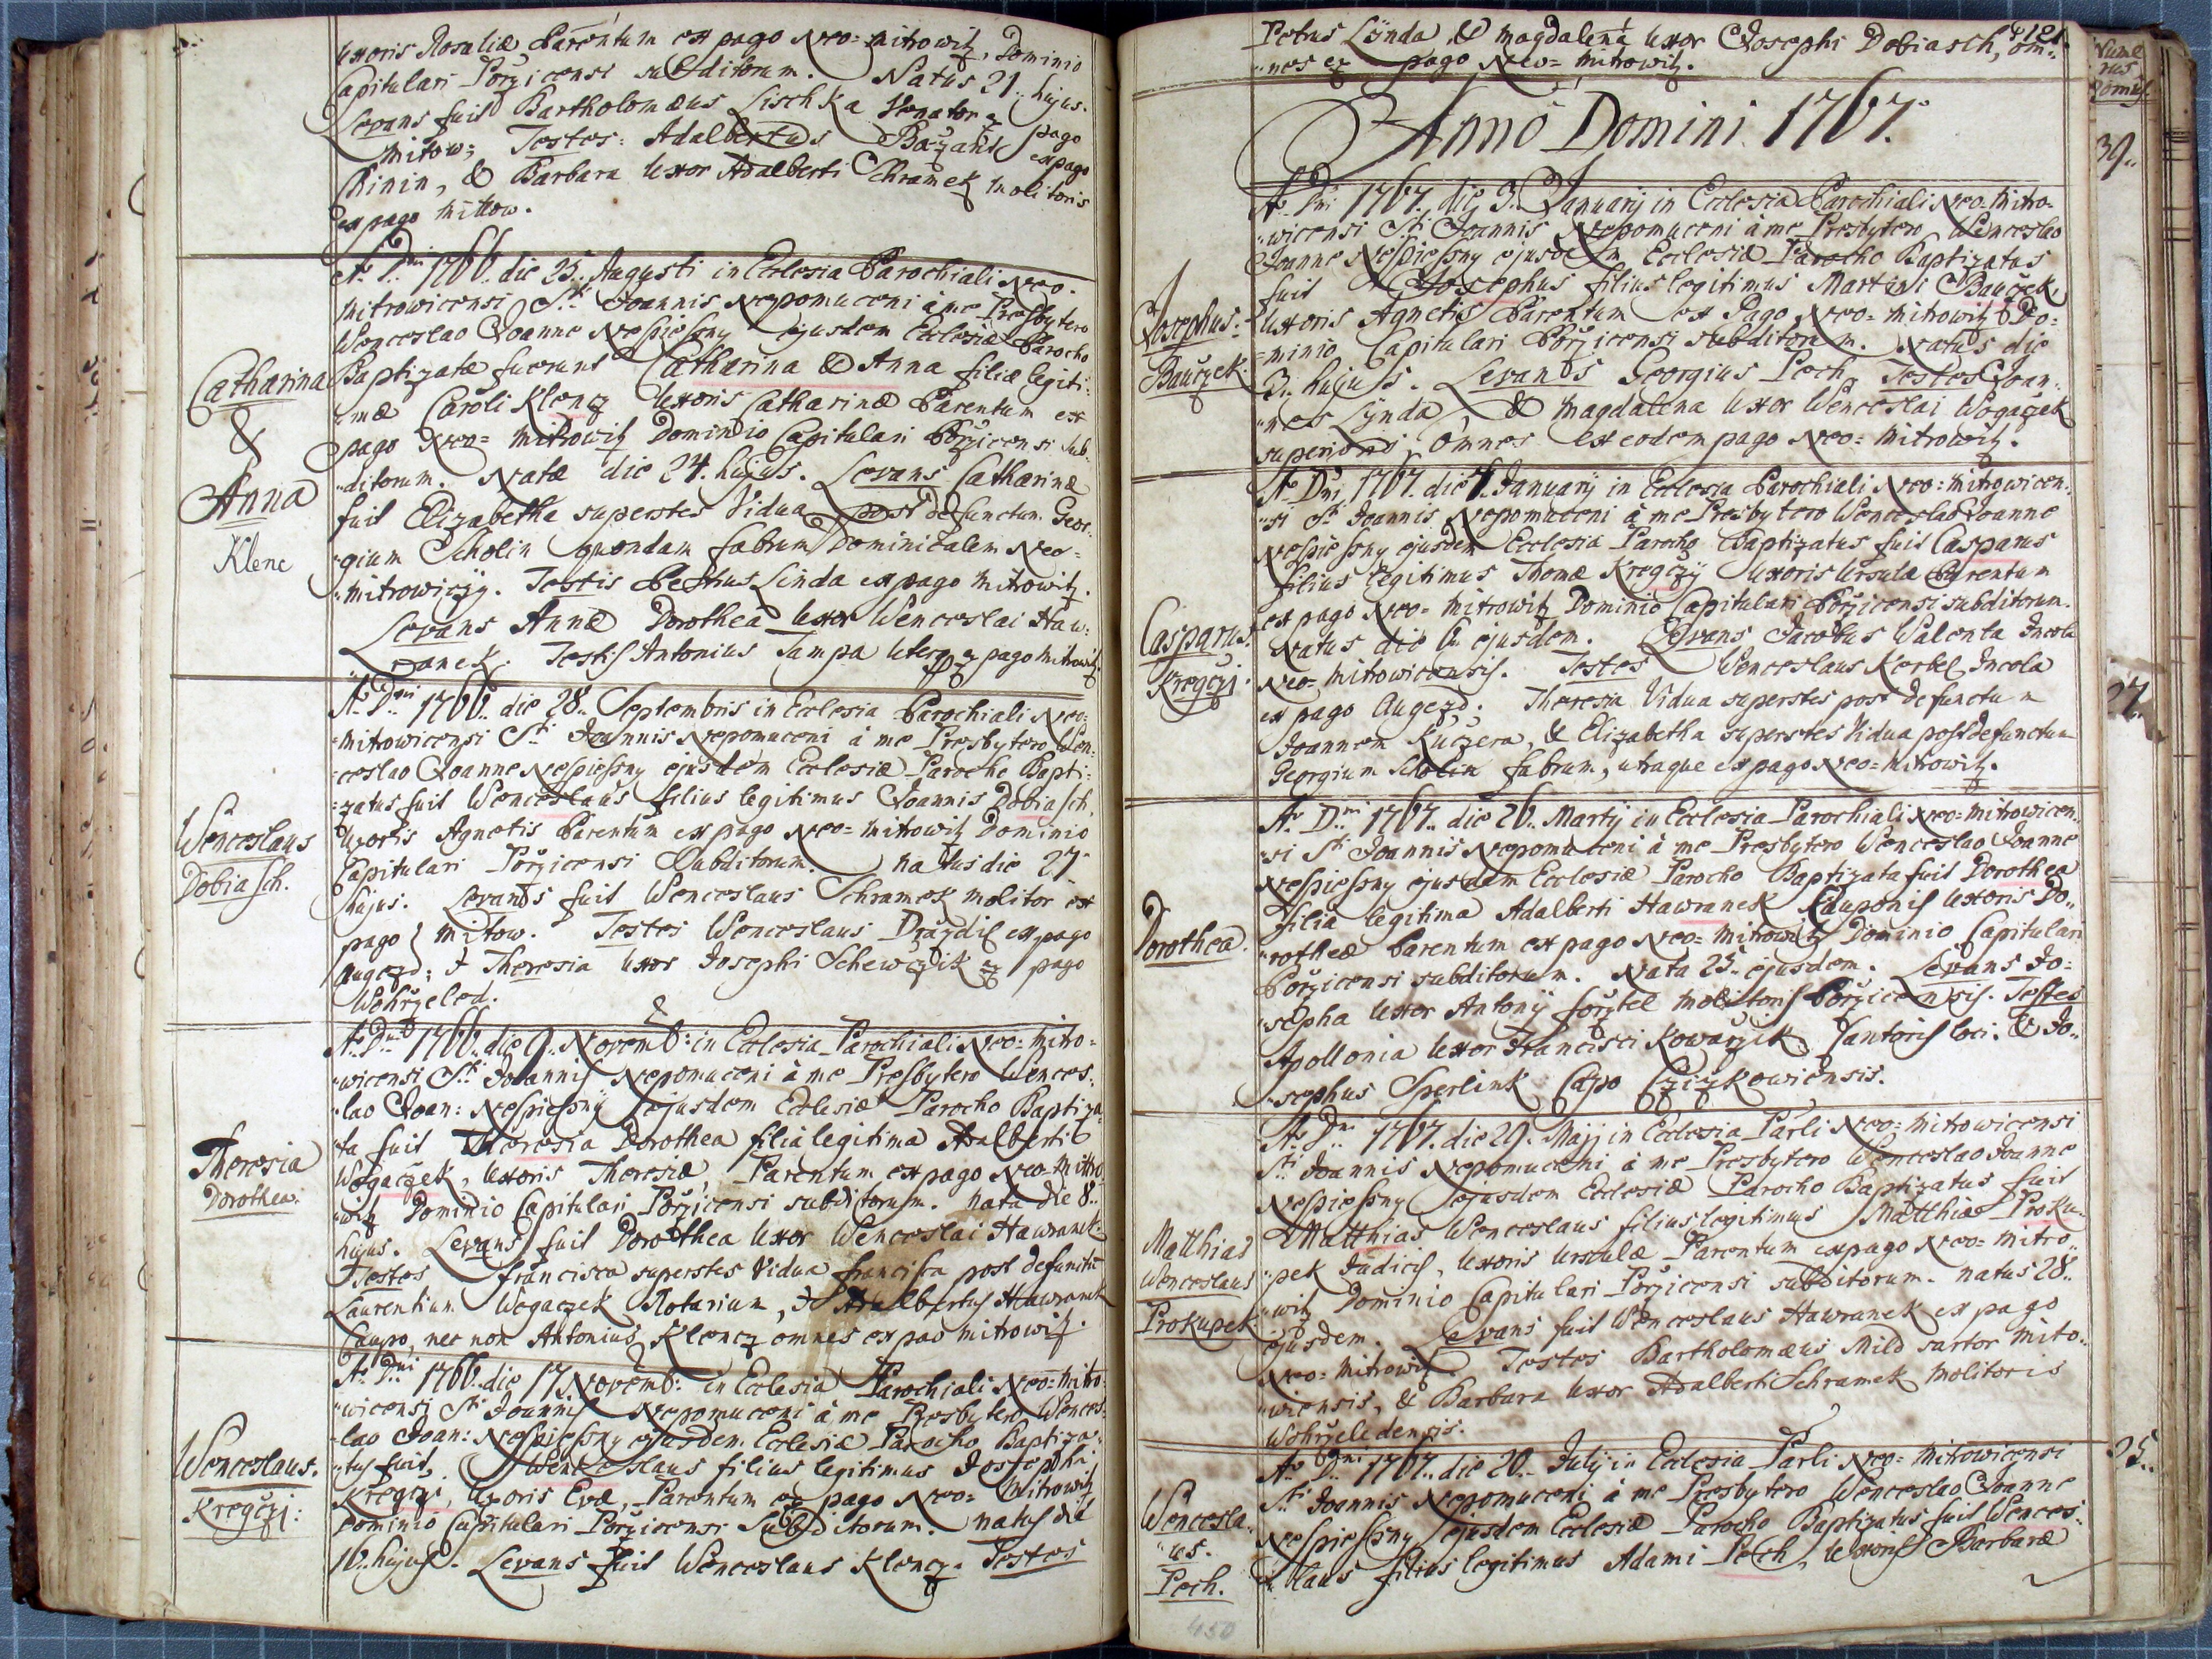 uxoris Rosaliæ Parentum ex pago Neo-Mitrowitz, Dominio
Capitulari Pořzicensi subditorum. Natus 21. hujus.
Levans fuit Bartholomæus Lischka Venator ex pago
Mitow; Testes: Adalbertus ex pago
Chinin, & Barbara Uxor Adalberti Schramek Molitoris
ex pago Mittow.
Catharina
&
Anna
Klenc
Aō Dni 1766. die 25. Augusti in Ecclesia Parochiali Neo-
Mitrowicensi Sti Joannis Nepomuceni à me Presbytero
Wenceslao Joanne Nespiessny ejusdem Ecclesiæ Parocho
Baptizatæ fuerunt Catharina & Anna filiæ legiti-
mæ Caroli Klencz Uxoris Catharinæ Parentum ex
pago Neo-Mitrowitz Dominio Capitulari Pořzicensi sub-
ditorum. Natæ die 24. hujus. Levans Catharinæ
fuit Elizabetha superstes Vidua post defunctum Geor-
gium Scholin quondam fabrum Dominicalem Neo-
Mitrowiczij. Testis Petrus Linda ex pago Mitrowitz.
Levans Annæ Dorothea Uxor Wenceslai Haw-
ranek. Testis Antonius Tampa uterq ex pago Mitrowitz
Wenceslaus
Dobiasch.
Aō Dni 1766. die 28. Septembris in Ecclesia Parochiali Neo-
Mitrowicensi Sti Joannis Nepomuceni à me Presbytero Wen-
ceslao Joanne Nespiessny ejusdem Ecclesiæ Parocho Bapti-
zatus fuit Wenceslaus filius legitimus Joannis Dobiasch,
Uxoris Agnetis Parentum ex pago Neo-Mitrowitz Dominio
Capitulari Pořzicensi Subditorum. natus die 27
hujus. Levans fuit Wenceslaus Schramek Molitor ex
pago Mitow. Testes Wenceslaus Drazdil ex pago
Augezd; & Theresia Uxor Josephi Schewczik ex pago
Wohrzeled.
Theresia
Dorothea.
Aō Dni 1766. die 9. Novemb: in Ecclesia Parochiali Neo-Mitro-
wicensi Sti Joannis Nepomuceni à me Presbytero Wences-
lao Joan: Nespiessny ejusdem Ecclesiæ Parocho Baptiza-
ta fuit Theresia Dorothea filia legitima Adalberti
Wogaczek, Uxoris Theresiæ, Parentum ex pago Neo-Mitro-
witz Dominio Capitulari Pořzicensi subditorum. Nata die 8.
hujus. Levans fuit Dorothea Uxor Wenceslai Hawranek.
Testes Francisca superstes Vidua post defunctū
Laurentium Wogaczek Notarium, & Adalbertus Hawranek
Caupo, nec non Antonius Klencz omnes ex pao Mitrowitz.
Wenceslaus.
Kregczj:
Aō Dni 1766. die 17. Novemb: in Ecclesia Parochiali Neo-Mitro-
wicensi Sti Joannis Nepomuceni à me Presbytero Wences-
lao Joan: Nespiessny ejusdem Ecclesiæ Parocho Baptiza-
tus fuit, Wenceslaus filius legitimus Josephi
Kregczi, Uxoris Evæ, Parentum ex pago Neo-Mitrowitz
Dominio Capitulari Pořzicensi Subditorum. natus die
16. hujus. Levans fuit Wenceslaus Klencz. Testes
121.
Petrus Lÿnda & Magdalena Uxor Josephi Dobiasch, om-
nes ex pago Neo-Mitrowitz.
Nume
rus
Domus
Anno Domini 1767.
39.
Josephus
Bauczek.
Aō Dni 1767. die 3. Januarij in Ecclesia Parochiali Neo-Mitro-
wicensi Sti Joannis Nepomuceni à me Presbytero Wenceslao
Joanne Nespiessny ejusdem Ecclesiæ Parocho Baptizatus
fuit Josephus filius legitimus Martini Bauczek,
Uxoris Agnetis Parentum ex Pago Neo-Mitrowitz Do-
minio Capitulari Pořzicensi subditorum. Natus die
3. hujus. Levans Georgius Pech, Testes Joan-
nes Lÿnda, & Magdalena Uxor Wenceslai Wogaczek
superioris, omnes ex eodem pago Neo-Mitrowitz.
Casparus.
Kregczj.
27.
Aō Dni 1767. die 7. Januarij in Ecclesia Parochiali Neo-Mitrowicen-
si Sti Joannis Nepomuceni à me Presbytero Wenceslao Joanne
Nespiessny ejusdem Ecclesiæ Parocho Baptizatus fuit Casparus
filius legitimus Thomæ Kregczij Uxoris Ursulæ Parentum
ex pago Neo-Mitrowitz Dominio Capitulari Pořzicensi subditorum.
Natus die 6. ejusdem. Levans Jacobus Walenta Incola
Neo-Mitrowicensis. Testes Wenceslaus Kerbel Incola
ex pago Augezd. Theresia Vidua superstes post defunctum
Joannem Kuczera, & Elizabetha superstes Vidua post defunctum
Georgium Scholin fabrum, utraque ex pago Neo-Mitrowitz.
Dorothea.
Aō Dni 1767. die 26. Martij in Ecclesia Parochiali Neo-Mitrowicen-
si Sti Joannis Nepomuceni à me Presbytero Wenceslao Joanne
Nespiessny ejusdem Ecclesiæ Parocho Baptizata fuit Dorothea
filia legitima Adalberti Hawranek Cauponis Uxoris Do-
rotheæ Parentum ex pago Neo-Mitrowitz Dominio Capitulari
Pořzicensi subditorum. Nata 25. ejusdem. Levans Jo-
sepha Uxor Antonij Molitoris Pořzicensis. Testes
Apollonia Uxor Francisci Kowarzik Cantoris loci. & Jo-
sephus Sperlink Capo Czizkowicensis.
Matthias
Wenceslaus
Prokupek
Aō Dni 1767. die 29. Maji in Ecclesia Parli Neo-Mitrowicensi
Sti Joannis Nepomuceni à me Presbytero Wenceslao Joanne
Nespiessny ejusdem Ecclesiæ Parocho Baptizatus fuit
Matthias Wenceslaus filius legitimus Matthiæ Proku-
pek Judicis, Uxoris Ursulæ Parentum ex pago Neo-Mitro-
witz Dominio Capitulari Pořzicensi subditorum. natus 28.
ejusdem. Levans fuit Wenceslaus Hawranek ex pago
Neo-Mitrowitz. Testes Bartholomæus Mild sartor Mito-
wiensis, & Barbara Uxor Adalberti Schramek Molitoris
Wohrzeledensis.
Wencesla-
us.
Pech.
25.
Aō Dni 1767. die 20. Julij in Ecclesia Parli Neo-Mitrowicensi
Sti Joannis Nepomuceni à me Presbytero Wenceslao Joanne
Nespiessny ejusdem Ecclesiæ Parocho Baptizatus fuit Wences-
laus filius legitimus Adami Pech, Uxoris Barbaræ
450